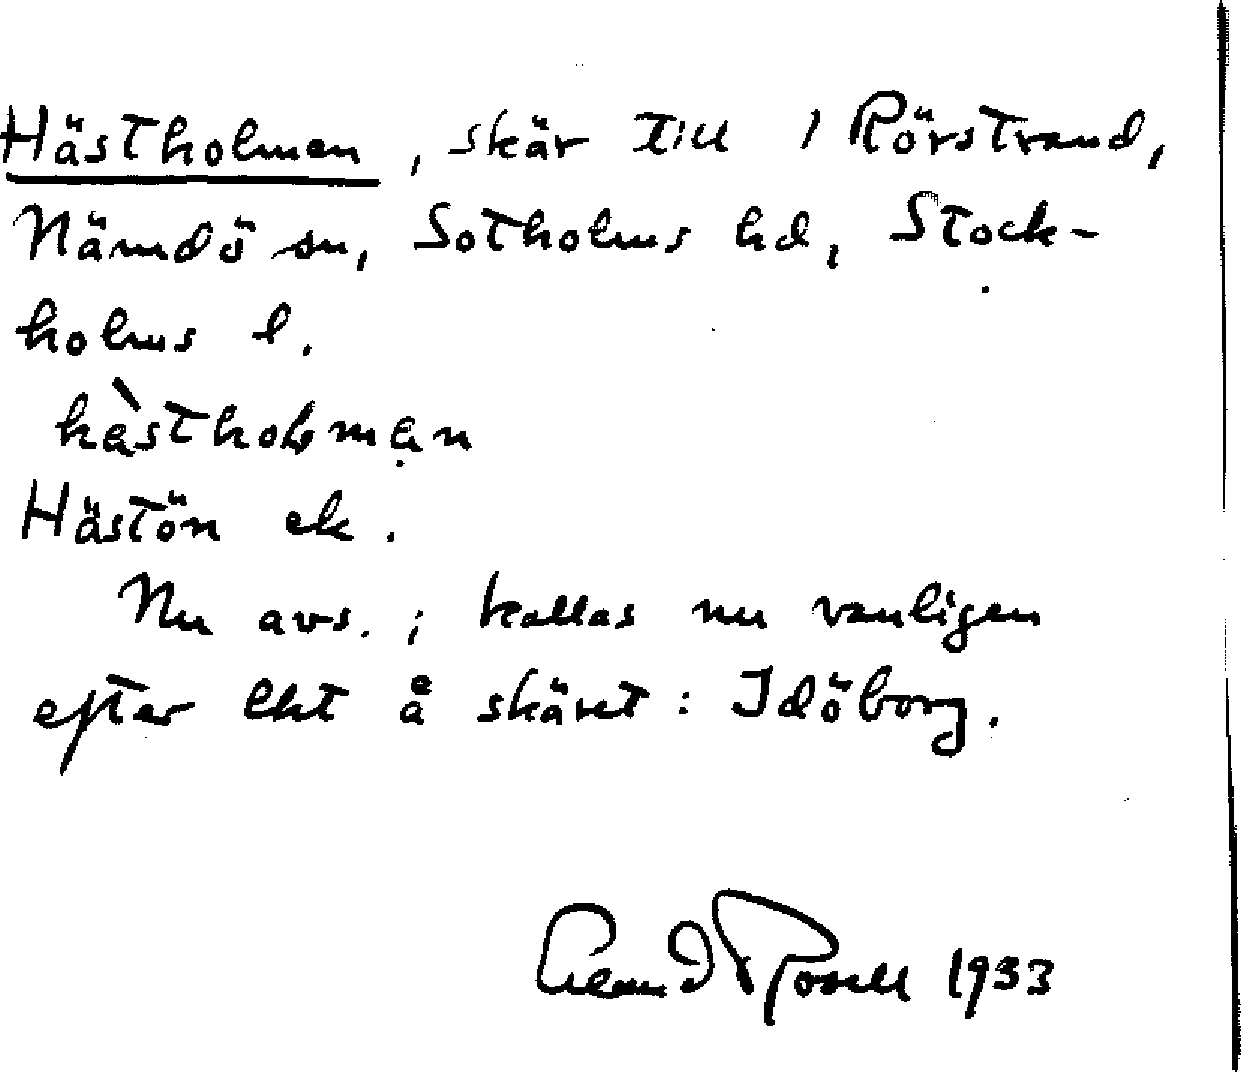 Hästholmen, skär till 1 Rörstrand,
Nämdö sn, Sotholms hd, Stock-
holms l.
hàstholmạn
Hästön ek.
Nu avs.; kallas nu vanligen
efter lht å skäret: Idöborg.
Rosell 1933